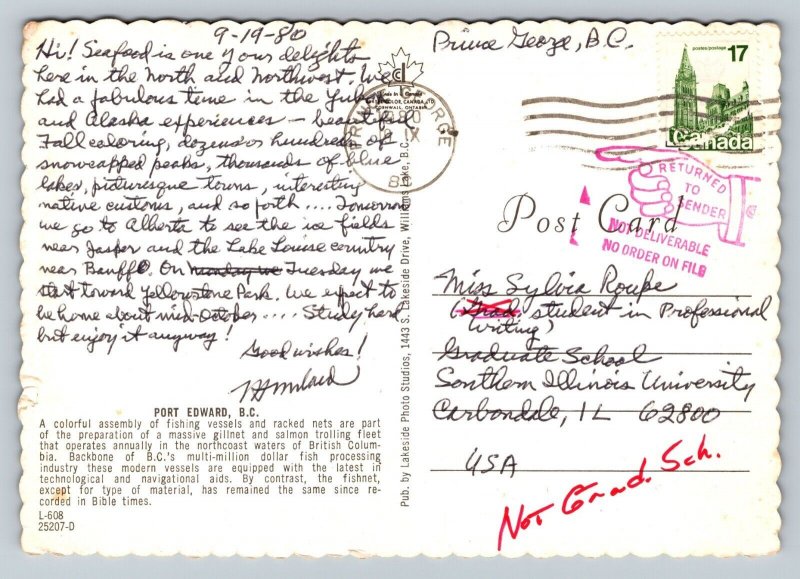 9-19-80
Hi! Seafood is one your delights
here in the North and Northwest. We
had a fabulous time in the Yukon
and Alaska experiences — beautiful
Fall coloring, dozens or hundreds of
snowcapped peaks, thousands of blue
lakes, picturesque towns, interesting
native customs, and so forth .... Tomorrow
we go to Alberta to see the ice fields
near Jasper and the Lake Louise country
near Banff. On Monday we Tuesday we
start toward Yellowstone Park. We expect to
be home about mid-October .... Study hard
but enjoy it anyway!
Good wishes!
PORT EDWARD, B.C.
A colorful assembly of fishing vessels and racked nets are part
of the preparation of a massive gillnet and salmon trolling fleet
that operates annually in the northcoast waters of British Colum-
bia. Backbone of B.C.'s multi-million dollar fish processing
industry these modern vessels are equipped with the latest in
technological and navigational aids. By contrast, the fishnet,
except for type of material, has remained the same since re-
corded in Bible times.
L-608
25207-D
Pub. by Lakeside Photo Studios, 1443 S. Lakeside Drive, Williams Lake, B.C.
Prince George, B.C.
postes/postage
17
Canada
PRINCE GEORGE
IX
RETURNED
TO
SENDER
NOT DELIVERABLE
NO ORDER ON FILE
Post Card
Miss Sylvia Roupe
(Grad. student in Professional
Writing)
Graduate School
Southern Illinois University
Carbondale, IL 62800
USA
Not Grad. Sch.